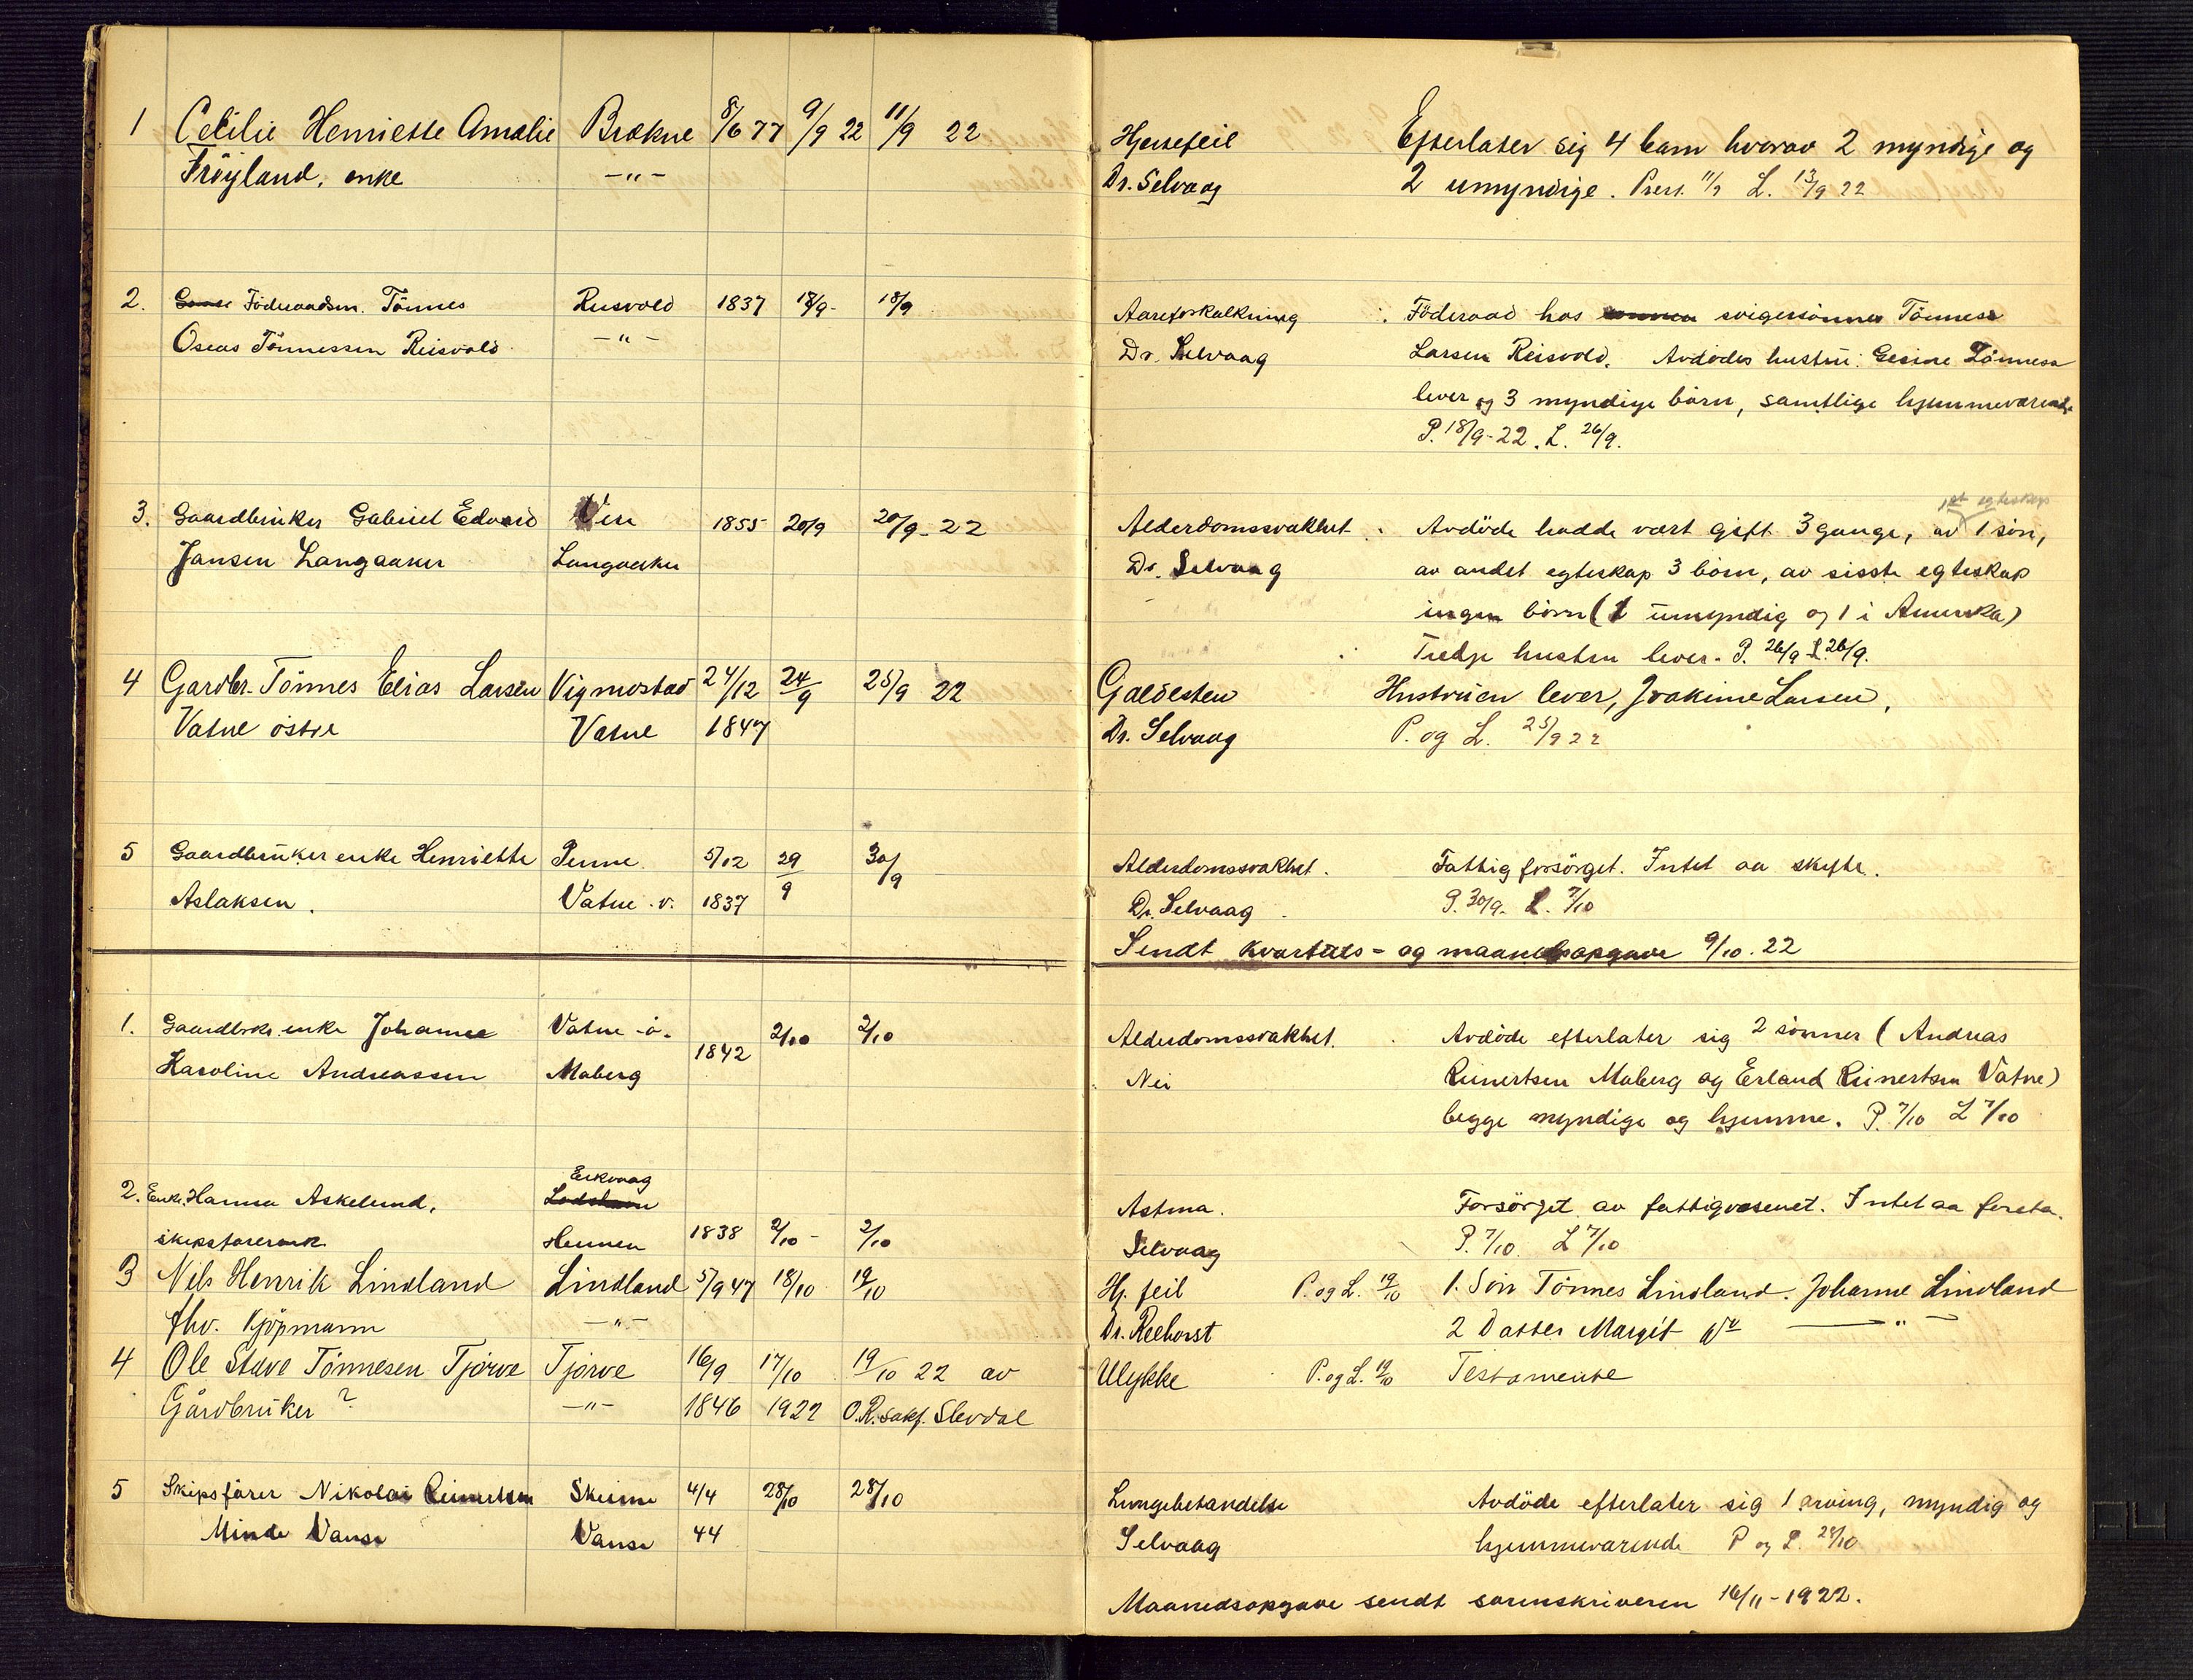 1 Cecilie Henriette Amalie Brækne 8/6 77 9/9 22 11/9 22 Hjertefeil Efterlater sig 4 barn hvorav 2 myndige og
Fröyland, enke -"- Dr. Selvaag 2 umyndige. Pres. 11/9 L. 13/9 22
2. Föderaadsm. Tönnes Rusvold 1837 18/9- 18/9 Aareforkalkning Föderaad hos svigersönnen Tönnes
Oseas Tönnessen Reisvold -"- Dr. Selvaag Larsen Reisvold. Avdödes hustru: Gesine Tönnessen
lever og 3 myndige börn, samtlige hjemmeværende
P. 18/9-22. L. 26/9.
1st egteskap
3. Gaardbruker Gabriel Edvard Ven 1855 20/9 20/9-22 Alderdomssvakhet. Avdöde hadde vært gift 3 gange, av 1 sön,
Jansen Langaaker Langaaker Dr. Selvaag av andet egteskap 3 börn, av sisste egteskap
ingen börn (1 umyndig og 1 i Amerika)
Tredje hustru lever. P. 26/9 L. 26/9.
4 Gardbr. Tönnes Elias Larsen Vigmostad 24/12 24/9 25/9 22 Galdesten Hustruen lever, Joakime Larsen,
Vatne östre Vatne 1847 Dr. Selvaag P. og L. 25/9 22
5 Gaardbruker enke Henriette Penne 5/12 29/9 30/9 Alderdomssvakhet. Fattigforsörget. Intet aa skifte.
Aslaksen. Vatne v. 1837 Dr. Selvaag P. 30/9. L. 7/10
Sendt kvartals- og maanedsopgave 9/10.22
1. Gaardbrk. enke Johanne Vatne ö. 1842 2/10 2/10 Alderdomssvakhet. Avdöde efterlater sig 2 sönner (Andreas
Karoline Andreassen Maberg Nei Reinertsen Maberg og Erland Reinertsen Vatne)
begge myndige og hjemme. P. 7/10 L 7/10
Eikvaag
2. Enke. Hanna Askelund, Lodshavn Astma. Forsörget av fattigvæsenet. Intet aa foreta.
skipsförerenk. Hennen 1838 2/10- 2/10 Selvaag P. 7/10. L 7/10
3 Nils Henrik Lindland Lindland 5/9 47 18/10 19/10 Hj. feil P. og L. 19/10 1. Sön Tönnes Lindland. Johanne Lindland
fhv. Kjöpmann -"- Dr. Reehorst 2 Datter Margit -"-
4 Ole Stave Tönnesen Tjörve Tjörve 16/9 17/10 19/10 22 av Ulykke P. og L. 19/10 Testamente
Gårdbruker? -"- 1846 1922 O.R. sakf. Slevdal
5 Skipsförer Nikolai Reinertsen Skeime 4/4 28/10 28/10 Lungebetændelse Avdöde efterlater sig 1 arving, myndig og
Minde Vanse Vanse 44 Selvaag hjemmeværende P og L. 28/10
Maanedsopgave sendt sorenskriveren 16/11-1922.